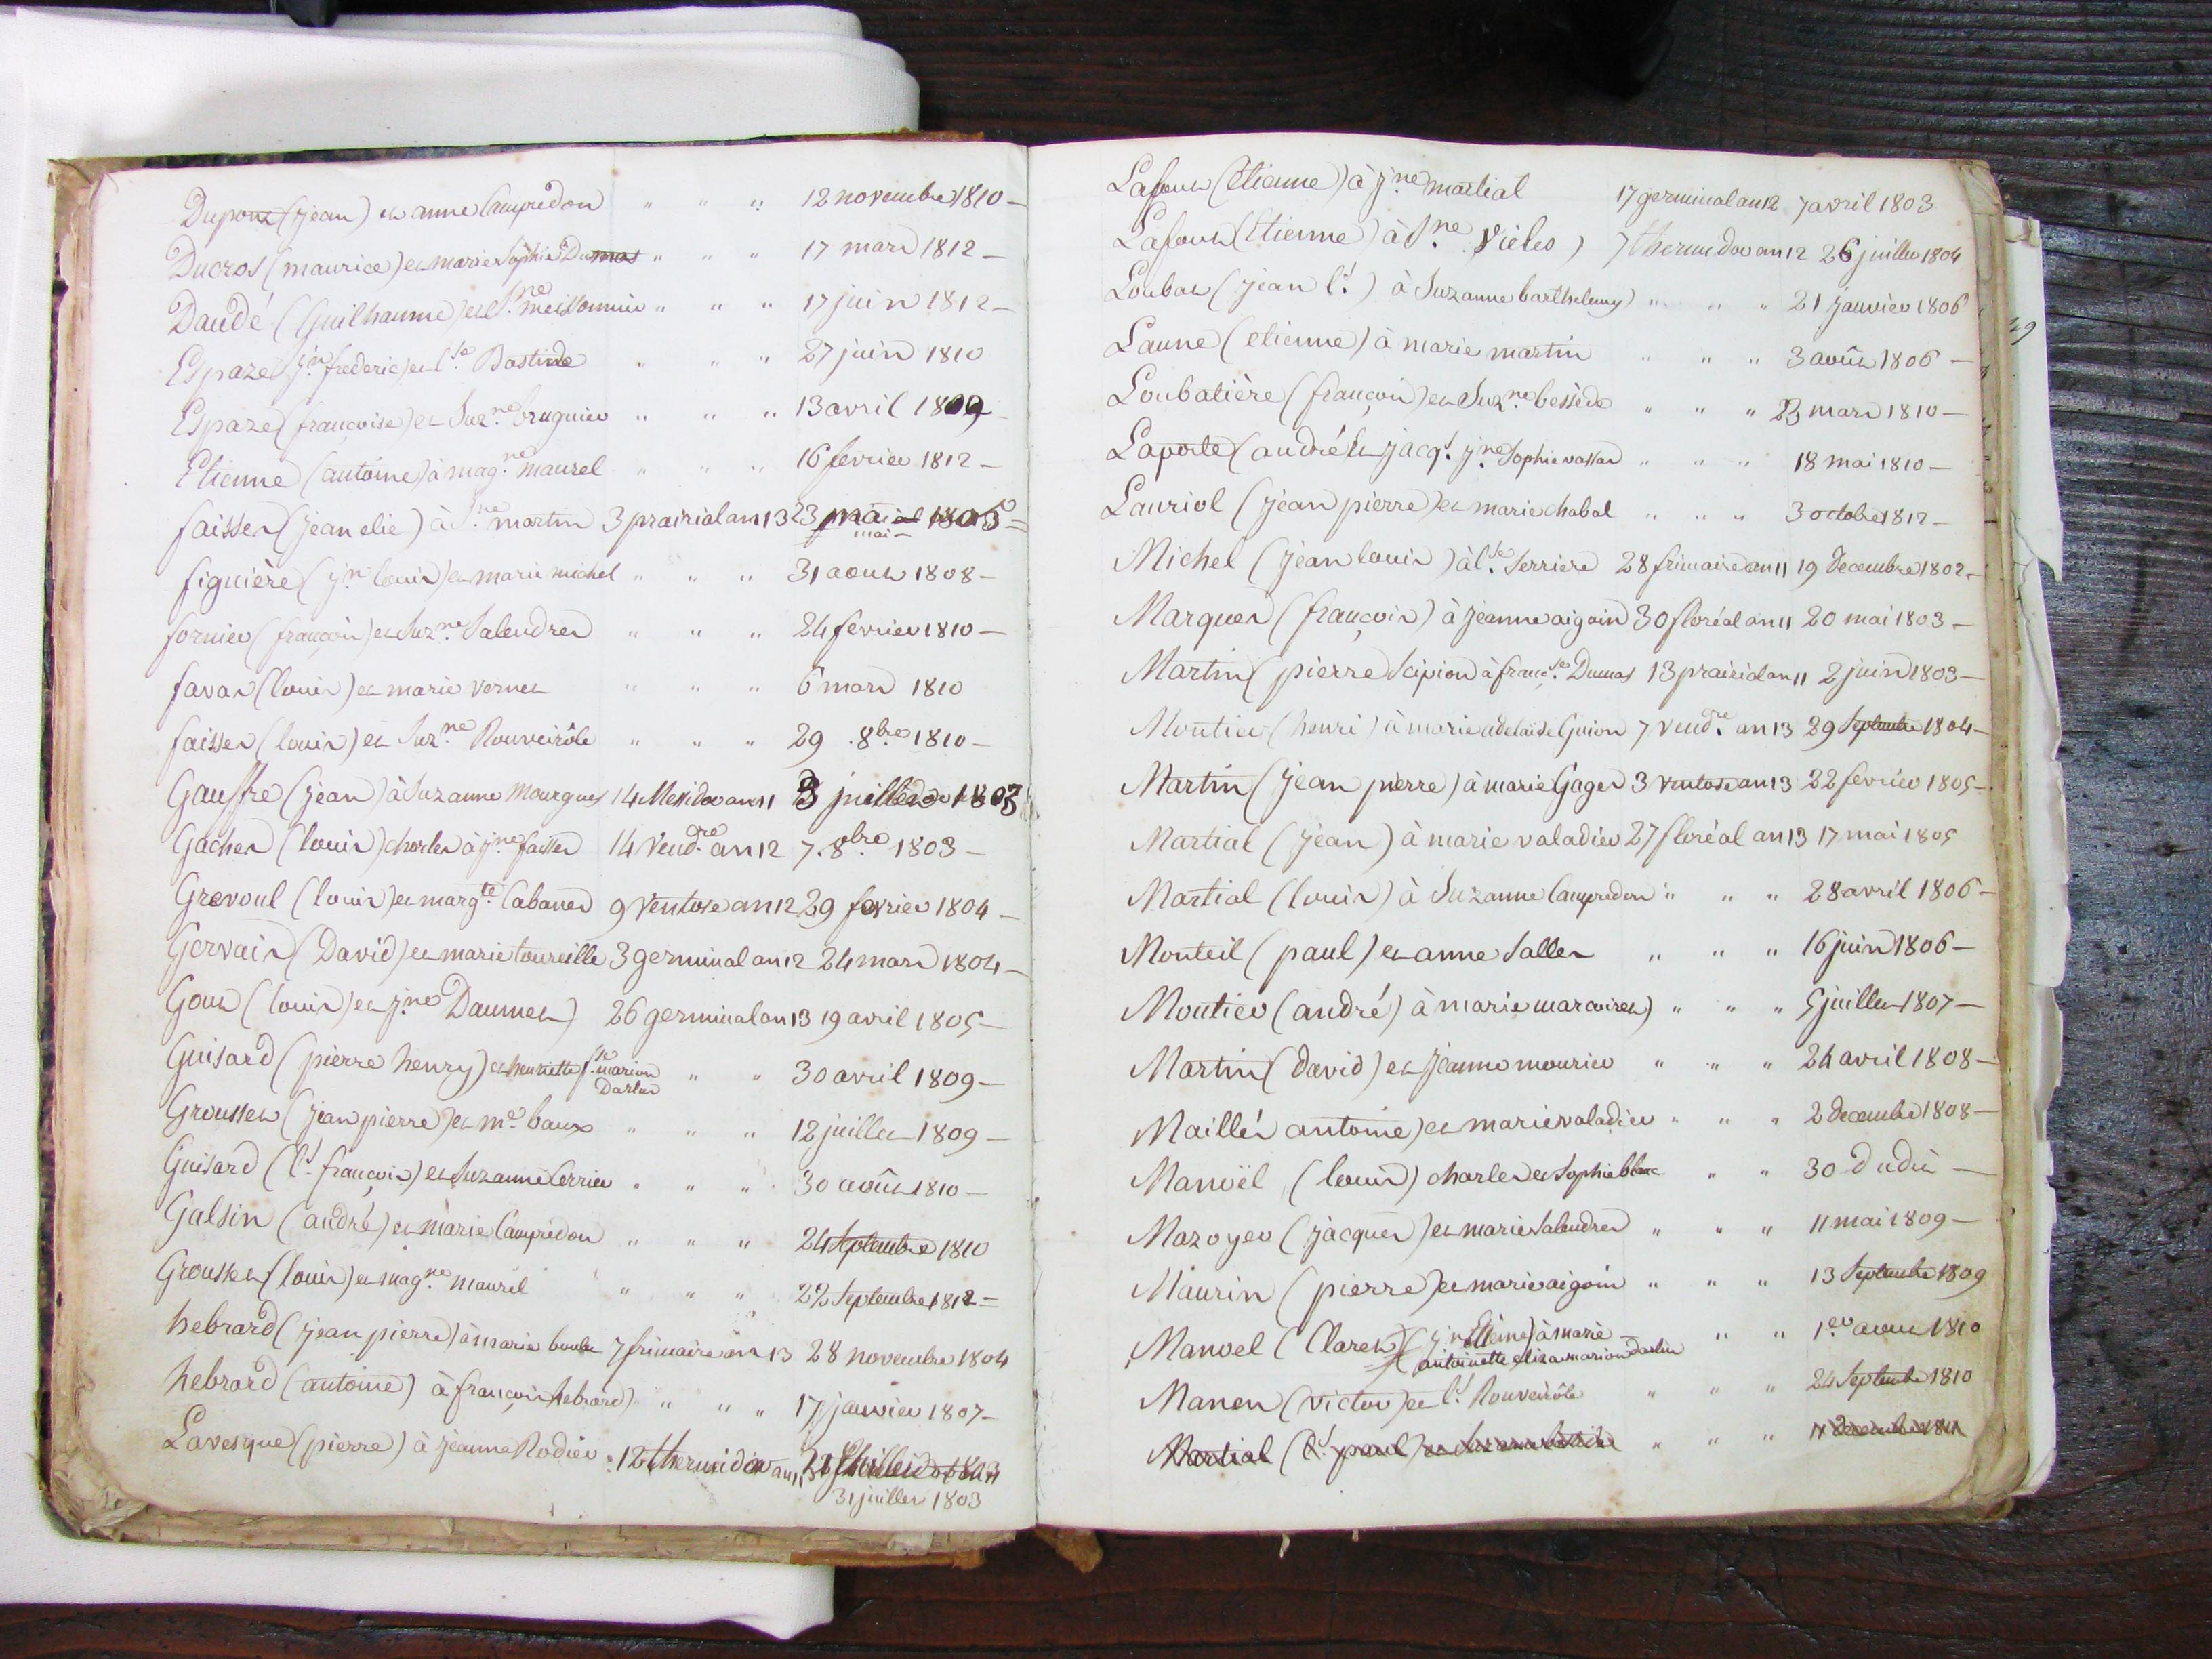 Dupont (jean) et anne Campredon " " " 12 novembre 1810 -
Ducros (maurice) et marie Sophie Dumas " " " 17 mars 1812 -
Daudé (Guilhaume) et S.ne meissonnier " " " 17 juin 1812 -
Espaze (j.n frederic) et l.se Bastide " " " 27 juin 1810
Espaze (françoise) et Suz.ne bruguier " " " 13 avril 1809
Etienne (antoine) à mag.ne maurel " " " 16 fevrier 1812 -
faisses (jean elie) à S.ne martin 3 prairial an 13 23 mai 1805 =
mai -
figuière (j.n louis) et marie michel " " " 31 aout 1808 -
fornier (françois) et Suz.ne Salendres " " " 24 fevrier 1810 -
favas (louis) et marie vernet " " " 6 mars 1810
faisses (louis) et Suz.ne Rouveirôle " " " 29 8.bre 1810 -
Gauffre (jean) à Suzanne mourgues 14 Messidor an 11 3 juillet 1803
Gaches (louis) charles à j.ne faisses 14 Vend.re an 12 7. 8.bre 1803 -
Grevoul (louis) et marg.te Cabanes 9 Ventose an 12 29 fevrier 1804 -
Gervais (David) et marie toureille 3 germinal an 12 24 mars 1804 -
Gout (louis) et j.ne Daumet) 26 germinal an 13 19 avril 1805 -
Guisard (pierre henry) et henriette f.se marion " " 30 avril 1809 -
Darlus
Grousset (jean pierre) et m.e baux " " " 12 juillet 1809 -
Guisard (l.s françois) et Suzanne Serrier " " " 30 août 1810 -
Galsin (andré) et marie Campredon " " " 24 Septembre 1810
Grousset (louis) et mag.ne maurel " " " 22 Septembre 1812 =
hebrard (jean pierre) à marie 7 frimaire an 13 28 novembre 1804
hebrard (antoine) à françois hebrard) " " " 17 janvier 1807 -
Lavesque (pierre) à jeanne Rodier 12 thermidor an 11
31 juillet 1803
Lafont (Etienne) à j.ne martial 17 germinal an 12 7 avril 1803
Lafont (Etienne) à S.ne Vieles) 7 thermidor an 12 26 juillet 1804
Loubat (jean l.s) à Suzanne barthelemy) " " " 21 janvier 1806
Laune (etienne) à marie martin " " " 3 août 1806 -
Loubatière (françois) et Suz.ne bessède " " " 23 mars 1810 -
Laporte (andré) et jacq.s j.ne Sophie vassas " " " 18 mai 1810 -
Lauriol (jean pierre) et marie chabal " " " 3 octobre 1812 -
Michel (jean louis) à l.se Serriere 28 frimaire an 11 19 Decembre 1802 -
Marques (françois) à jeanne aigoin 30 floréal an 11 20 mai 1803 -
Martin (pierre Scipion à franc.se Dumas 13 prairial an 11 2 juin 1803 -
Moutier (henri) à marie adelaïde Guion 7 vend.re an 13 29 Septembre 1804 -
Martin (jean pierre) à marie Gages 3 Ventose an 13 22 fevrier 1805 -
Martial (jean) à marie valadier 27 floréal an 13 17 mai 1805
Martial (louis) à Suzanne Campredon " " " 28 avril 1806 -
Monteil (paul) et anne Salles " " " 16 juin 1806 -
Moutier (andré) à marie marcoiret) " " " 5 juillet 1807 -
Martin (David) et jeanne mourier " " " 24 avril 1808 -
Maillés antoine) et marie valadier " " " 2 Decembre 1808 -
Manoël (louis) charles et Sophie blanc " " 30 dudit -
Mazoyer (jacques) et marie Salendres " " " 11 mai 1809 -
Maurin (pierre) et marie aigoin " " " 13 Septembre 1809
Manoel (Claret) (j.n Etieine) à marie " " 1.er aout 1810
antoinette eliza marion Darlus
Manen (victor) et l.s Rouveirôle " " " 24 Septembre 1810
Martial (l.s paul) et Suzanne " " " Decembre 1811